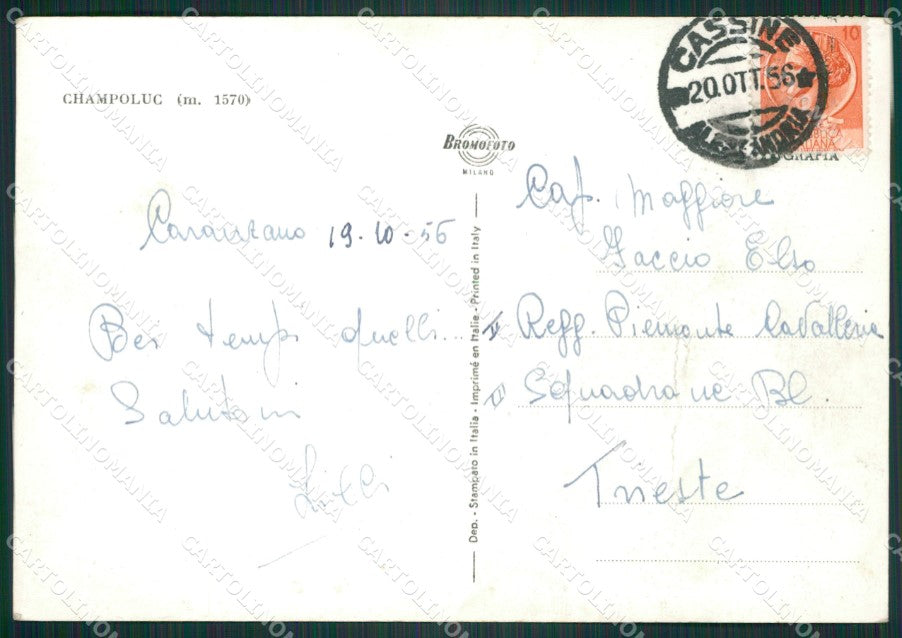 CHAMPOLUC (m. 1570)
BROMOFOTO
MILANO
CASSINE
20.OTT.56
ALESSANDRIA
10
ITALIANA
GRAFIA
19-10-56
Bei tempi quelli...
Salutoni
Lilli
Dep. - Stampato in Italia - Imprimé en Italie - Printed in Italy
Cap. Maggiore
Faccio Elso
Regg. Piemonte Cavalleria
Squadrone Bl.
Trieste
CARTOLINOMANIA